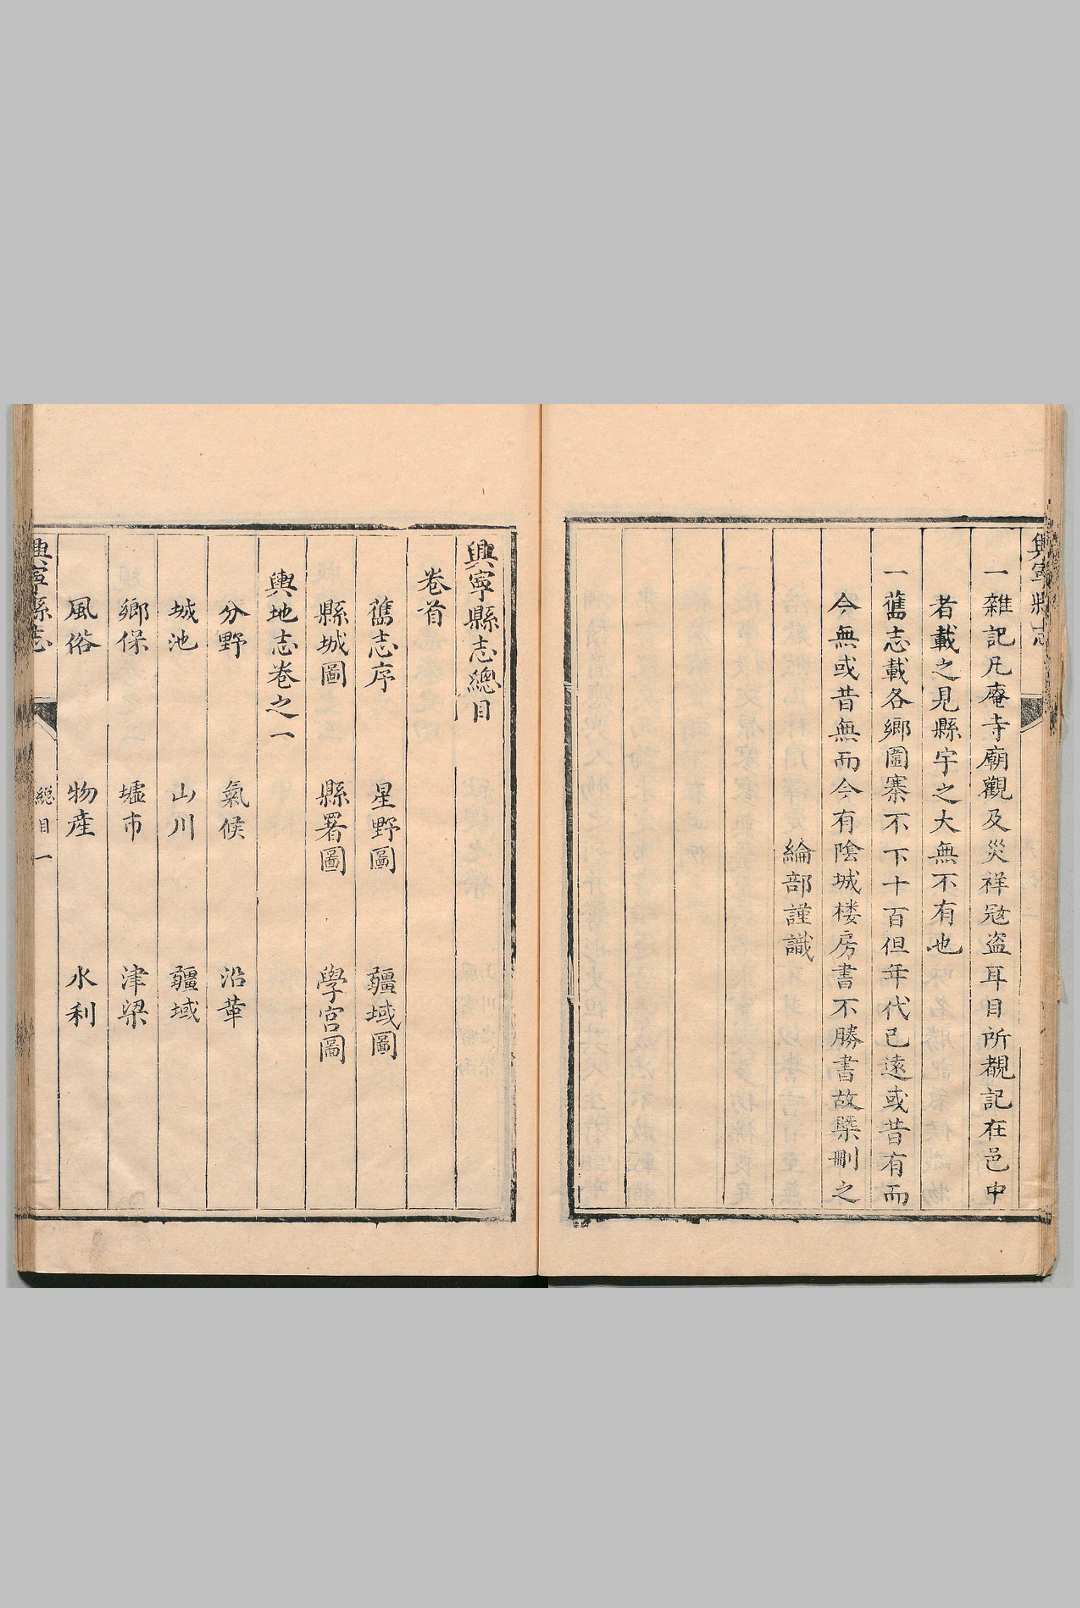 興寧縣志
一雜記凡庵寺廟觀及災祥冦盗耳目所覩記在邑中
者載之見縣宇之大無不有也
一舊志載各鄉圖寨不下十百但年代已遠或昔有而
今無或昔無而今有陰城楼房書不勝書故槩刪之
綸部謹識
興寧縣志總目
卷首
舊志序 星野圖 疆域圖
縣城圖 縣署圖 學宮圖
輿地志卷之一
分野 氣候 沿革
城池 山川 疆域
鄉保 墟市 津梁
風俗 物產 水利
興寧縣志 總目 一